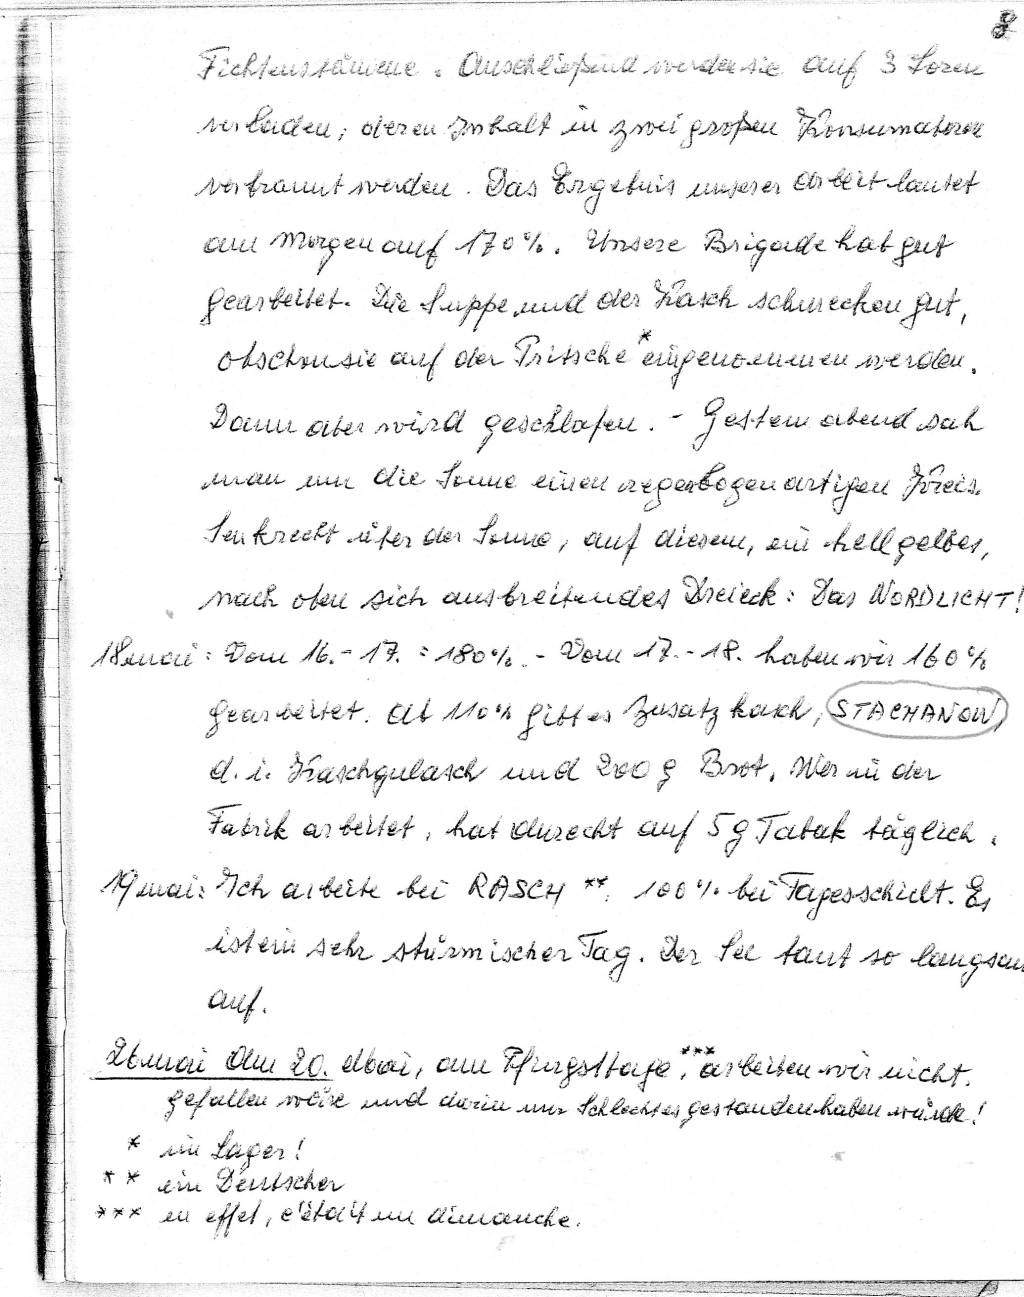 8
Fichtenstämme. Anschließend werden sie auf 3 Loren
verladen, deren Inhalt in zwei großen Konsumatoren
verbrannt werden. Das Ergebnis unserer Arbeit lautet
am Morgen auf 170%. Unsere Brigade hat gut
gearbeitet. Die Suppe und der Kasch schmecken gut,
obschon sie auf der Pritsche * eingenommen werden.
Dann aber wird geschlafen. - Gestern abend sah
man um die Sonne einen regenbogenartigen Kreis.
Senkrecht über der Sonne, auf diesem, ein hellgelbes,
nach oben sich ausbreitendes Dreieck: Das NORDLICHT!
18 mai: Vom 16.-17. = 180%. - Vom 17.-18. haben wir 160%
gearbeitet. Ab 110% gibt es Zusatzkasch, STACHANOW,
d. i. Kaschgulasch und 200 g Brot. Wer in der
Fabrik arbeitet, hat Anrecht auf 5 g Tabak täglich.
19 mai: Ich arbeite bei RASCH **, 100% bei Tagesschicht. Es
ist ein sehr stürmischer Tag. Der See taut so langsam
auf.
26 mai Am 20. Mai, am Pfingsttage ***, arbeiten wir nicht.
gefallen wäre und darin nur Schlechtes gestanden haben würde!
* im Lager!
** ein Deutscher
*** en effet, c'était un dimanche.